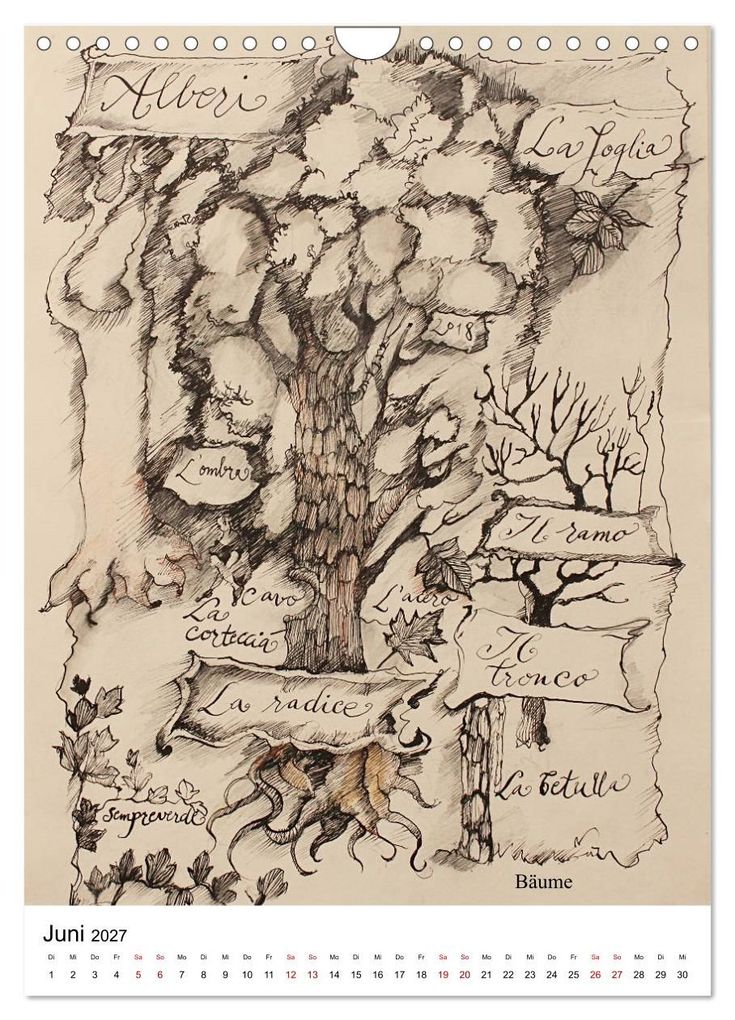 Alberi
La foglia
2018
L'ombra
Il ramo
cavo
La
corteccia
L'acero
Il
tronco
La radice
La betulla
Sempreverde
Bäume
Juni 2027
Di Mi Do Fr Sa So Mo Di Mi Do Fr Sa So Mo Di Mi Do Fr Sa So Mo Di Mi Do Fr Sa So Mo Di Mi
1 2 3 4 5 6 7 8 9 10 11 12 13 14 15 16 17 18 19 20 21 22 23 24 25 26 27 28 29 30